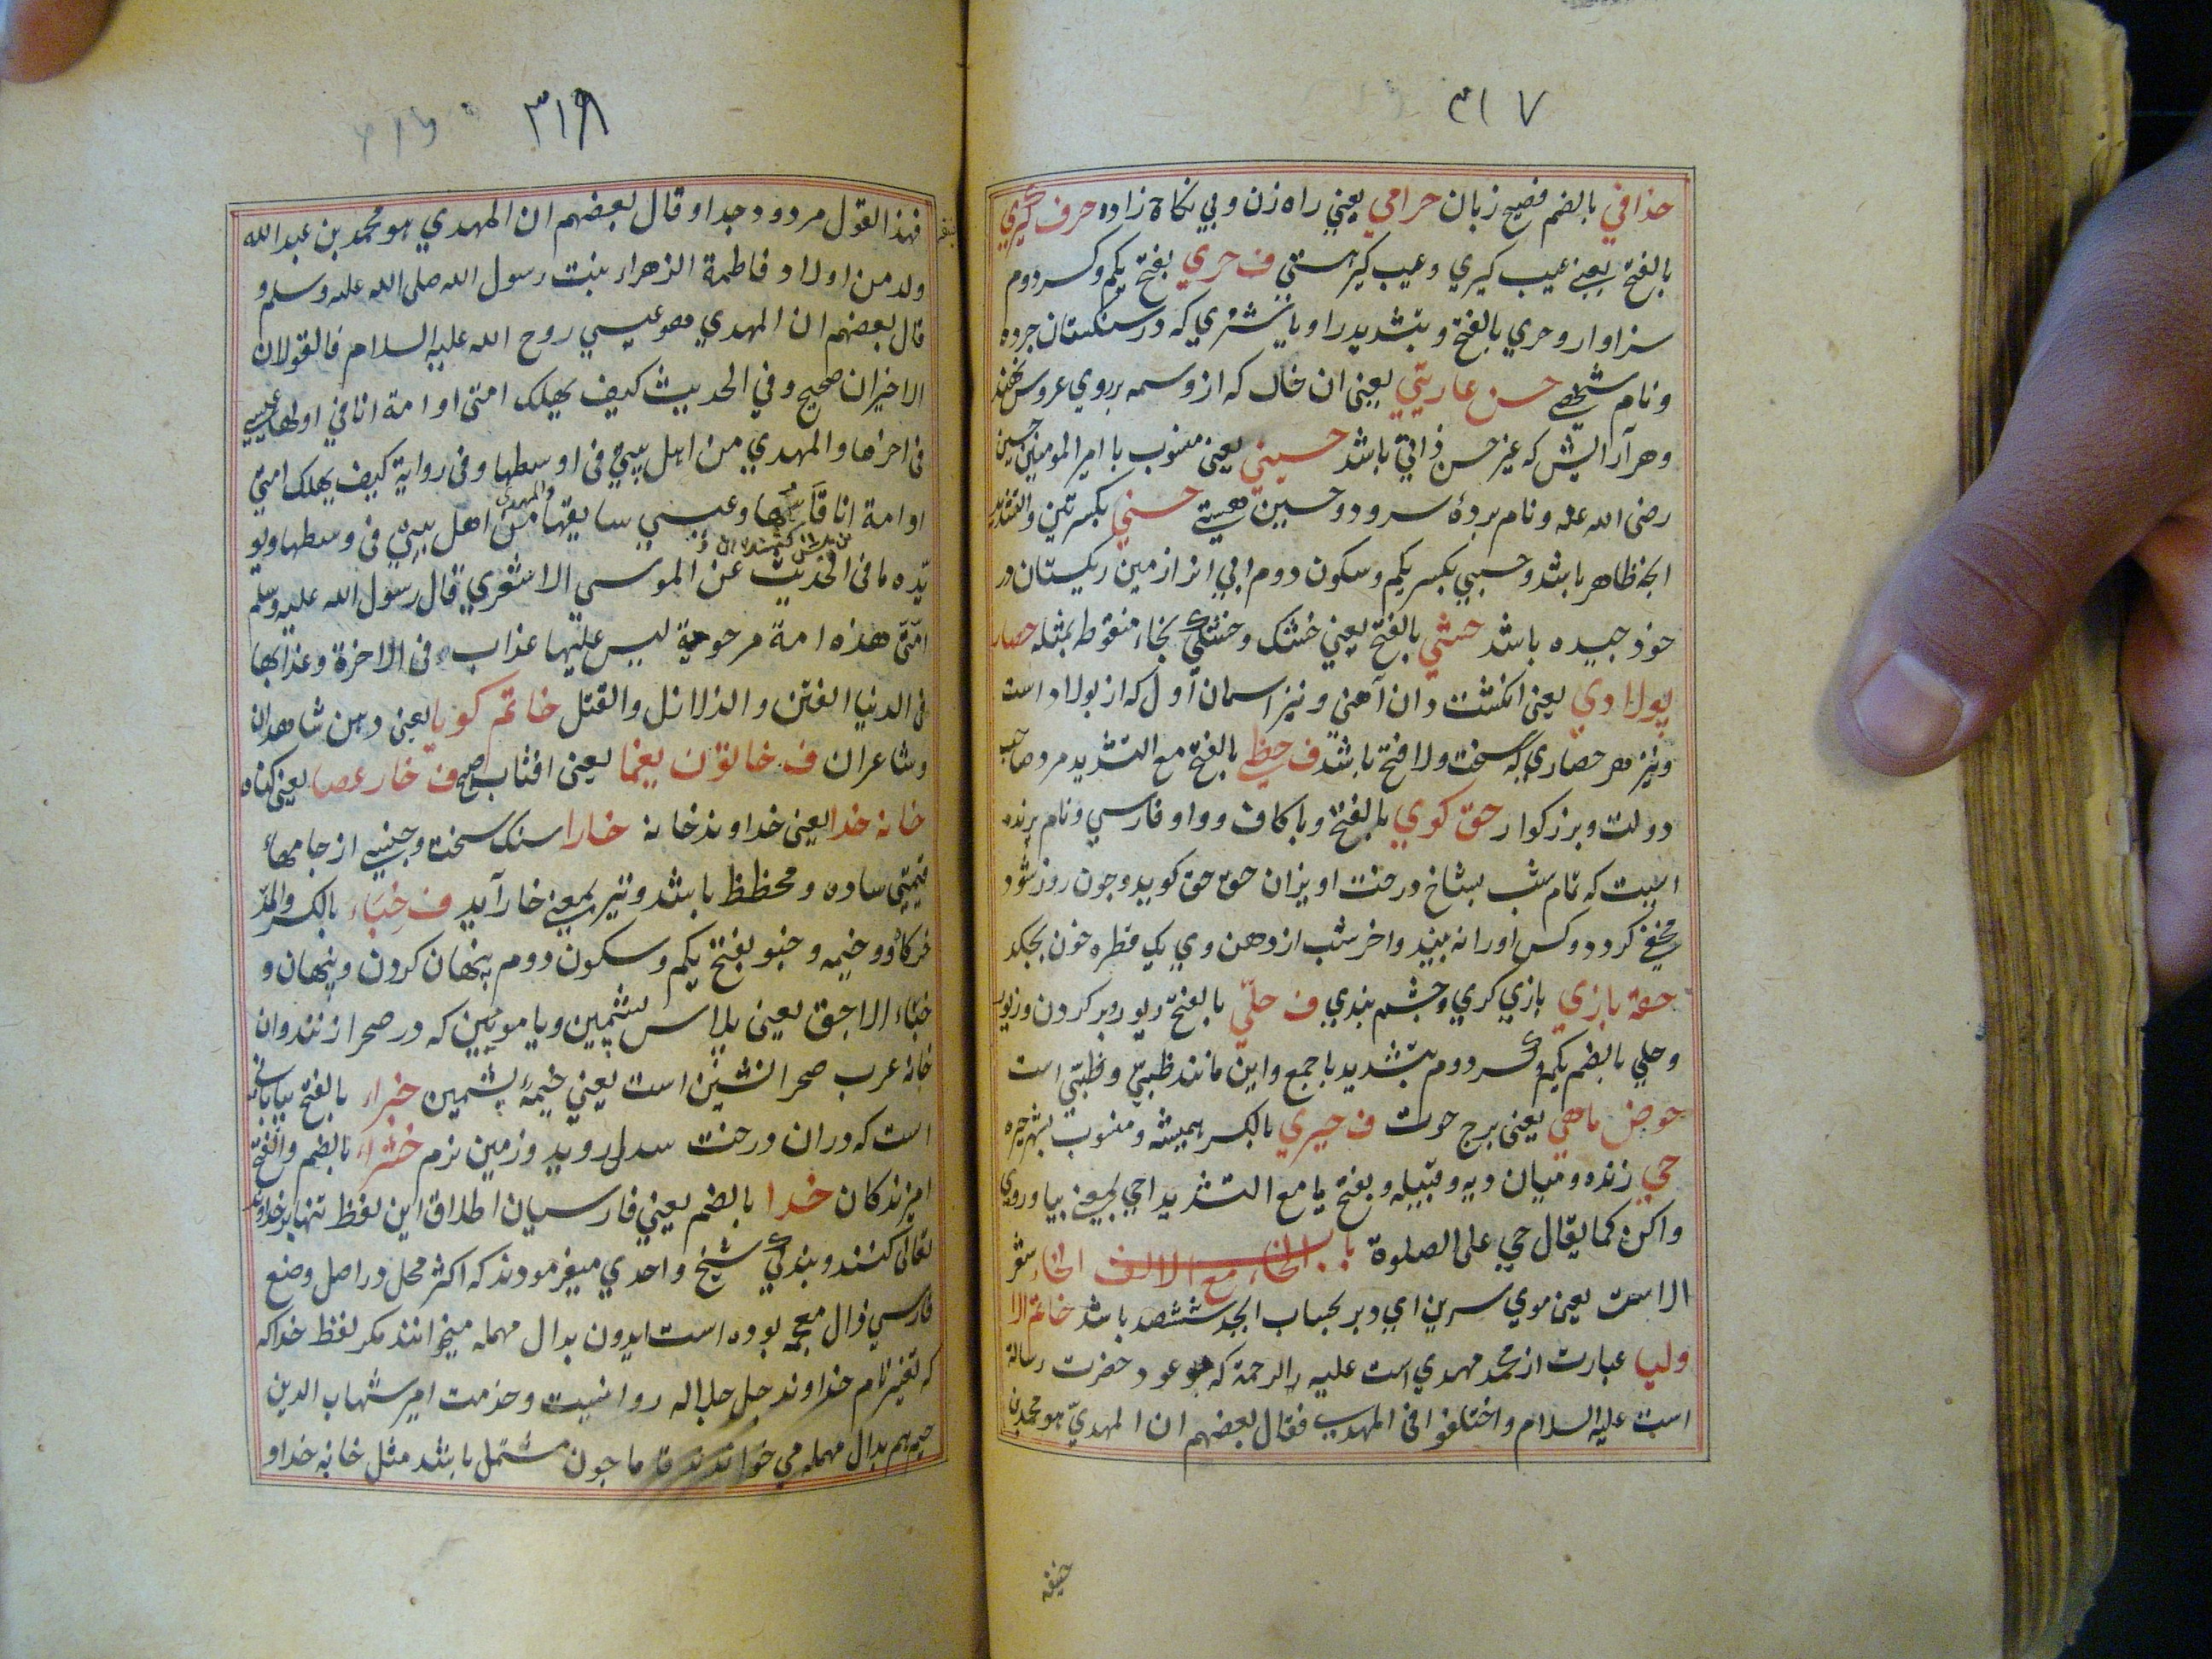 ٣١٧
حذاقي بالضم فصيح زبان حرامي يعني راه زن وبي نكاح زاده حرف كيري
بالفتح يعني عيب كيري وعيب كير هستي ف حري بفتح يكم وكسر دوم
سزاوار وحري بالفتح وبتشديد را ويا شتري كه در سنكستان جرده
ونام شخصي حسن عاريتي يعني ان خال كه از وسمه برروي عروس نهند
وهر آرايش كه غير حسن ذاتي باشد حسيني يعني منسوب با امير المومنين حسين
رضى الله عنه ونام بردهٔ سرود وحسين هستي حسي بكسرتين والتشديد
انچه ظاهر باشد وحسيي بكسر يكم وسكون دوم ابي از زمين ريكستان در
خود جيده باشد حشي بالفتح يعني خشك وخشكي بخاء منقوط بمثله حصار
پولادي يعني انكشت دان آهني ونيز اسمان اول كه از پولاد است
ونيز هر حصاري كه سخت ولا فتح باشد ف حظي بالفتح مع التشديد مرد صاحب
دولت وبزركوار حق كوي بالفتح وبا كاف وواو فارسي ونام پرنده
ايست كه تمام شب بشاخ درخت اويزان حق حق كويد وچون روز شود
مخفي كردد وكس اورا نه بيند واخر شب از دهن وي يك قطره خون بچكد
حقه بازي بازي كري وچشم بندي ف حلي بالفتح زيور وبر كردن وزيور
وحلي بالضم يكم وكسر دوم بتشديد يا جمع واين مانند ظبي وظبي است
حوض ماهي يعني برج حوت ف حيري بالكسر هميشه ومنسوب بشهر حيره
حي زنده وميان ديه وقبيله وبفتح يا مع التشديد اجي بمعني بيا وروي
واكن كما يقال حي على الصلوة باب الخاء مع الالف الخاء شعر
الاست يعني موي سرين ادمي ودر حساب ابجد ششصد باشد خاتم الا
وليا عبارت از محمد مهدي است عليه الرحمة كه موعود حضرت رسالة
است عليه السلام واختلفوا في المهدي فقال بعضهم ان المهدي هو محمد بن
حنيفه
٣١٨
فهذا القول مردود جدا وقال بعضهم ان المهدي هو محمد بن عبد الله
ولد من اولاد فاطمة الزهراء بنت رسول الله صلى الله عليه وسلم و
قال بعضهم ان المهدي هو عيسي روح الله عليه السلام فالقولان
الاخيران صحيح وفي الحديث كيف يهلك امتى او امة انا في اولها وعيسي
في اخرها والمهدي من اهل بيتي في اوسطها وفي رواية كيف يهلك امتي
او امة انا قائدها وعيسي سايقها والمهدي من اهل بيتي في وسطها ويو
يّده ما في الحديث عن الموسي الاشعري قال رسول الله عليه وسلم
امتي هذه امة مرحومة ليس عليها عذاب في الاخرة وعذابها
في الدنيا الفتن والزلازل والقتل خاتم كويا يعني دهن شاهدان
وشاعران ف خاتون يغما يعني افتاب صبح ف خار عصا يعني كناه
خانه خدا يعني خداوند خانه خارا سنك سخت وجنسي از جامهاء
قيمتي ساده ومحظظ باشد ونيز بمعني خار آيد ف خباء بالكسر والمد
خركاه وخيمه وخبو بفتح يكم وسكون دوم پنهان كردن وپنهان و
خباء الاجق يعني پلاس پشمين ويا موئين كه در صحرا زنند وان
خانه عرب صحرا نشين است يعني خيمهٔ پشمين خبراء بالفتح بياباني
است كه دران درخت سدل رويد وزمين نرم خشراء بالضم والفتح
امزندكان خدا بالضم يعني فارسيان اطلاق اين لفظ تنها بر خداوند
تعالى كنند وبندكي شيخ واحدي ميفرمودند كه اكثر محل در اصل وضع
فارسي ذال معجمه بوده است ايدون بدال مهمله ميخوانند مكر لفظ خدا كه
كه تغير نام خداوند جل جلاله روا نيست وخدمت امير شهاب الدين
حيم هم بدال مهمله مي خواندند تا ما چون مشتمل باشد مثل خانه خدا و